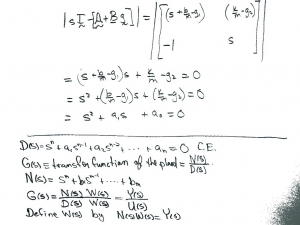 |sI-[A+Bg]| = |[(s+k/m-g₁) (k/m-g₂)
-1 s]|
= (s+k/m-g₁)s + k/m-g₂ = 0
= s² + (k/m-g₁)s + (k/m-g₂) = 0
= s² + a₁s + a₀ = 0
D(s) = sⁿ + a₁sⁿ⁻¹ + a₂sⁿ⁻², ... + aₙ = 0 C.E.
G(s) = transfer function of the plant = N(s)/D(s)
N(s) = sⁿ + b₁sⁿ⁻¹ + ... + bₙ
G(s) = N(s) W(s) / D(s) W(s) = Y(s)/U(s)
Define W(s) by N(s)W(s) = Y(s)